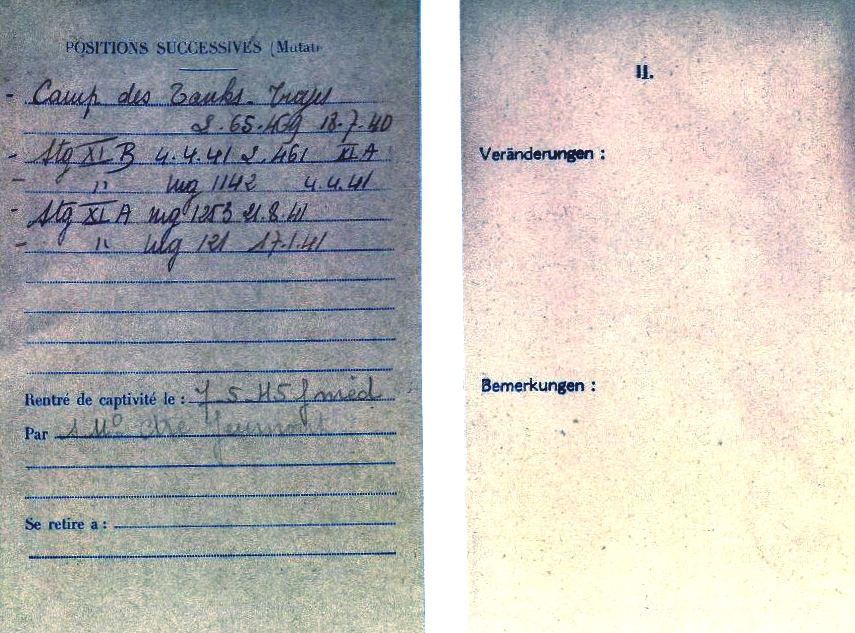 POSITIONS SUCCESSIVES (Mutati
- Camp des Tanks. Troyes
2.65.469 18.7.40
- Stg XI B 4.4.41 2.461 XI A
- " mg 1142 4.4.41
- Stg XI A mg 1253 21.8.41
- " mg 121 17.1.41
Rentré de captivité le : 7 5 45
Par
Se retire a :
II.
Veränderungen :
Bemerkungen :